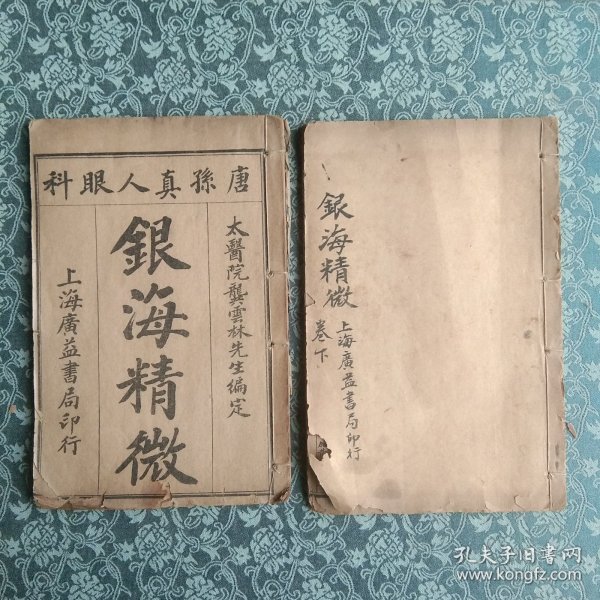 唐孫真人眼科
太醫院龔雲林先生編定
銀海精微
上海廣益書局印行
銀海精微
卷下
上海廣益書局印行
孔夫子旧书网
www.kongfz.com